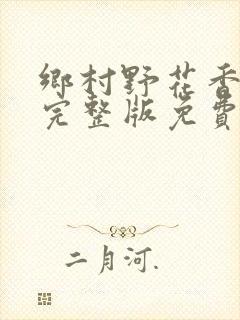 鄉村野花香
完整版免費
二月河.